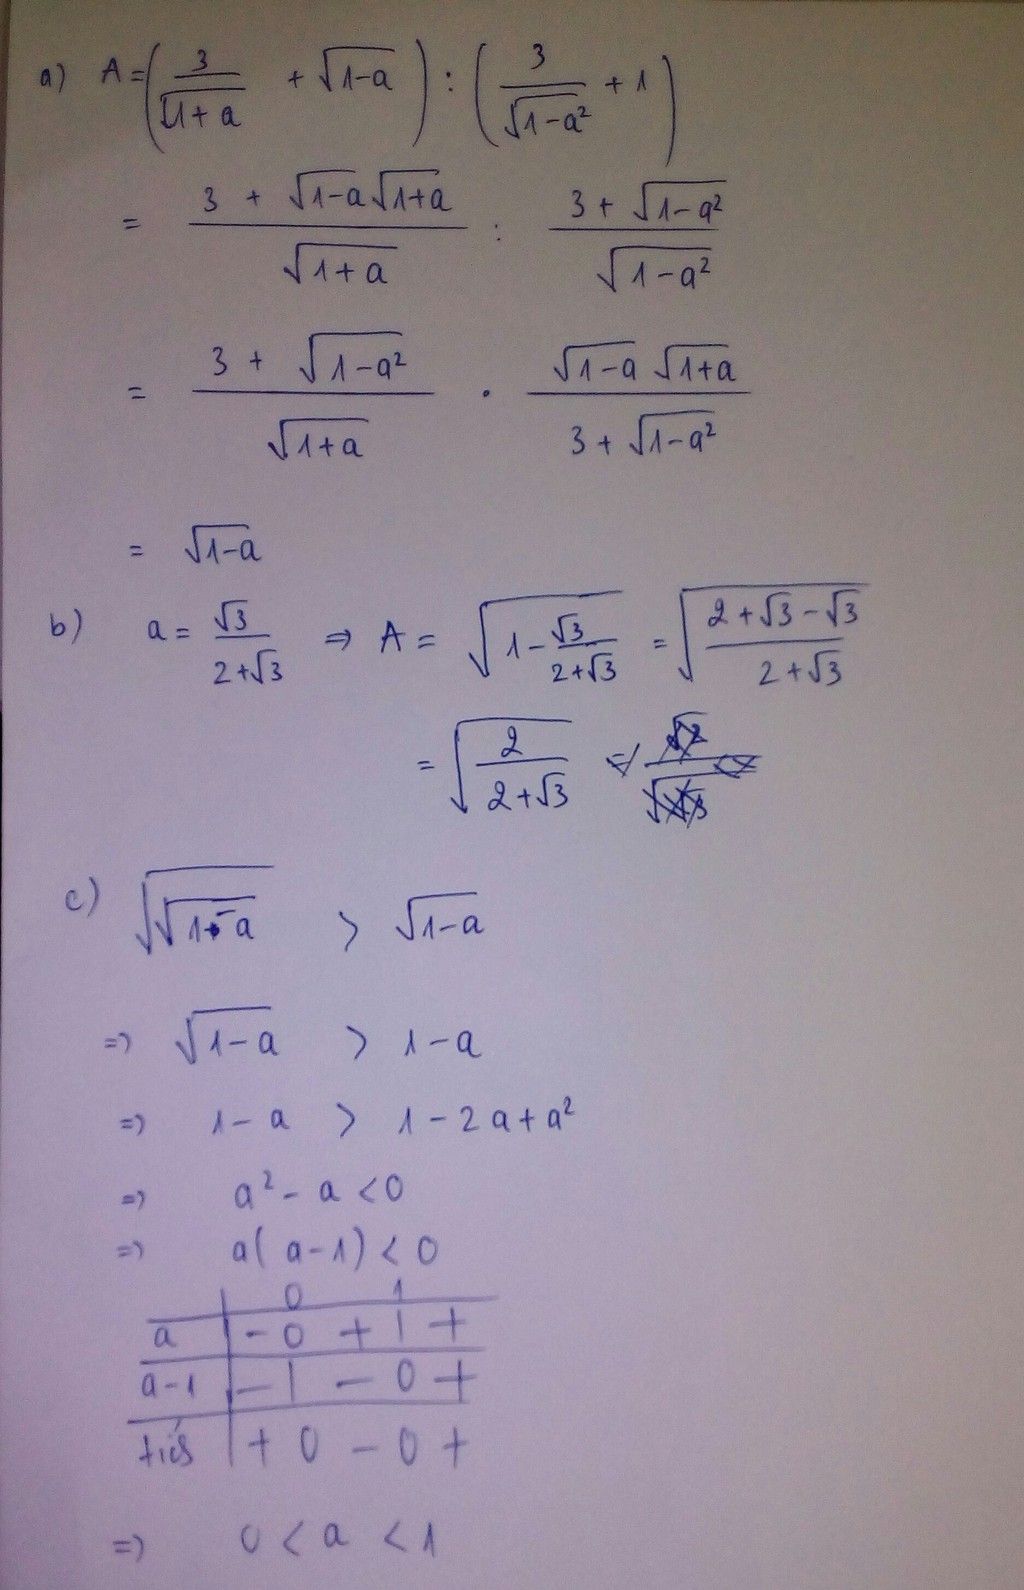 a) A = (3/√(1+a) + √(1-a)) : (3/√(1-a²) + 1)
= (3 + √(1-a)√(1+a))/√(1+a) : (3 + √(1-a²))/√(1-a²)
= (3 + √(1-a²))/√(1+a) . (√(1-a) √(1+a))/(3 + √(1-a²))
= √(1-a)
b) a = √3/(2+√3) ⇒ A = √(1 - √3/(2+√3)) = √((2+√3-√3)/(2+√3))
= √(2/(2+√3))
c) √(√(1-a)) > √(1-a)
⇒ √(1-a) > 1-a
⇒ 1-a > 1-2a+a²
⇒ a²-a<0
⇒ a(a-1)<0
0 1
a | - 0 + | +
a-1 | - | - 0 +
| + 0 - 0 +
⇒ 0 < a < 1